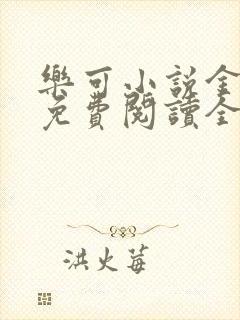 樂可小說全
免費閱讀全
洪火莓